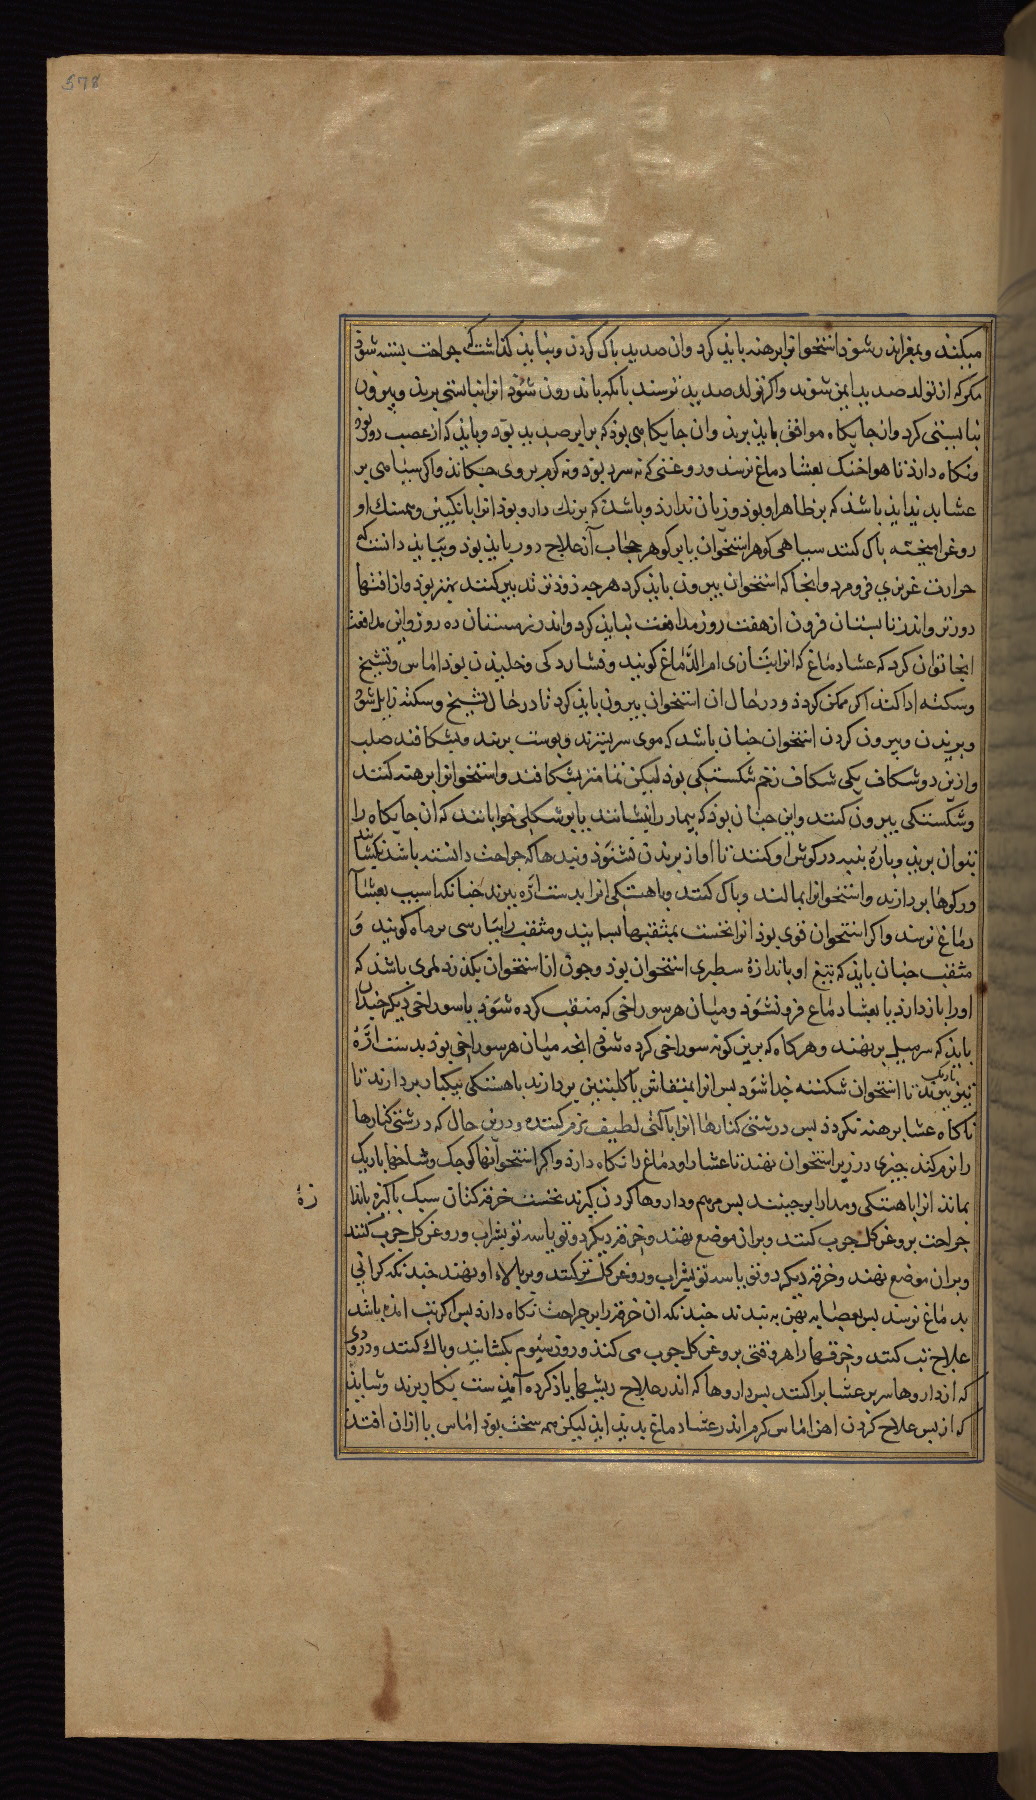 578
میکنند و بمغز اندر شود استخوانرا برهنه باید کرد وان صدید پاک کردن و نباید گذاشت که جراحت بسته شود
مکر که از تولد صدید ایمن شوند واکر تولد صدید ترسند یا انکه باندرون شود انرا نبایستی برید و بیرون
نبایستی کرد وان جایکاه موافق باید برید وان جایکاهی بود که برابر صدید بود و باید که از عصب دور بود
و نکاه دارند تا هوا خنک بعشاء دماغ نرسد و روغنی که نه سرد بود و نه کرم بر وی چکانند واکر سیاهی بر
عشا پدید اید باشد که بر ظاهر او بود و زیان ندارد و باشد که برنک دارو بود انرا بانکبین و همسنک او
روغن امیخته پاک کنند سیاهی کوهر استخوان یا بر کوهر حجاب از علاج دور باید بود و بباید دانست که
حرارت غریزی فرو مرد وانجا که استخوان بیرون باید کرد هرچه زودتر تدبیر کنند بهتر بود واز افتها
دورتر واندر تابستان فزون از هفت روز مدافعت نباید کرد واندر زمستان ده روز واین مدافعت
انجا توان کرد که عشاء دماغ که انرا بتازی ام الدماغ کویند و فشاردکی و خلیدن بود اماس و تشنج
و سکته ادا کند اکر ممکن کردد و در حال ان استخوان بیرون باید کرد تا در حال تشنج و سکته زایل شود
و بریدن و بیرون کردن استخوان جنان باشد که موی سر بسترند و پوست برند و بشکافند صلیب
وازین دو شکاف یکی شکاف زخم شکستکی بود لیکن تمامتر بشکافند واستخوانرا برهنه کنند
و شکستکی بیرون کنند واین جنان بود که بیمار را بنشانند یا بر شکلی خوابانند که ان جایکاه را
بتوان برید و پاره پنبه در کوش او کنند تا اواز بریدن نشنود و بندها که جراحت دا بسته باشد بکشایند
و رکوها بردارند واستخوانرا بمالند و پاک کنند و باهستکی انرا بدست اره ببرند جنانکه اسیب بعشاء
دماغ نرسد واکر استخوان قوی بود انرا نخست بمثقبها بسایند و مثقب را بپارسی برماه کویند و
مثقب جنان باید که تیغ او باندازه سطبری استخوان بود و جون از استخوان بکذرد لمری باشد که
اورا باز دارد تا بعشاء دماغ فرو نشود و میان هر سوراخی که مثقب کرده شود تا سوراخی دیکر جندان
باید که سر میل بر نهند و هرکاه که برین کونه سوراخی کرده شود انجه میان هر سوراخی بود بدست اره
باریک تیز ببرند تا استخوان شکسته جدا شود پس انرا بمنقاش یا کلبتین بردارند باهستکی بیکبار بردارند تا
ناکاه عشا برهنه نکردد پس درشتی کنارها انرا بالتی لطیف نرم کنند و درین حال که درشتی کنارها
را نرم کنند چیزی در زیر استخوان نهند تا عشا را و دماغ را نکاه دارد واکر استخوانها کوجک و شاخها باریک
بماند انرا باهستکی و مدارا برجینند پس مرهم و داروها کردن کیرند نخست خرقه کتان سبک پاکیزه باندازه
جراحت بروغن کل جرب کنند و بران موضع نهند و خرقه دیکر دو تو یا سه تو بشراب و روغن کل جرب کنند
و بران موضع نهند و خرقه دیکر دو تو یا سه تو بشراب و روغن کل تر کنند و بر بالاء او نهند جندانکه کرانی
بدماغ نرسد پس بعصابه پهن به بندند جندانکه ان خرقه را بر جراحت نکاه دارد پس اکر تب امده باشد
علاج تب کنند و خرقها را هر وقتی بروغن کل جرب می کنند و روز سیوم بکشایند و پاک کنند و دردوی
که از داروها سر بر عشا پراکند پس داروها که اندر علاج ریشها یاد کرده امدست بکار برند و شاید
که از پس علاج کردن اهن اماس کرم اندر عشاء دماغ پدید اید لیکن مه سخت بود اماس باز ان افتد
زهٔ